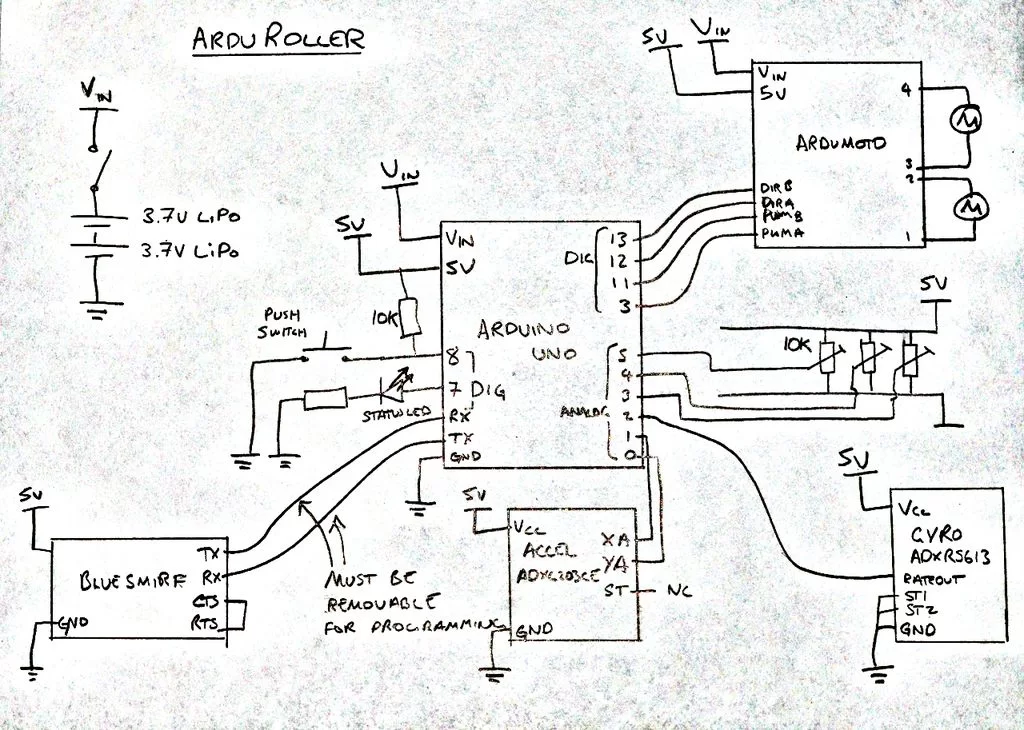 ARDUROLLER
VIN
3.7V LIPO
3.7V LIPO
5V
VIN
VIN
5V
ARDUMOTO
DIRB
DIRA
PWMB
PWMA
4
3
2
1
M
M
VIN
5V
VIN
5V
10K
PUSH
SWITCH
8
7
DIG
STATUS LED
RX
TX
GND
ARDUINO
UNO
DIG
13
12
11
3
ANALOG
5
4
3
2
1
0
5V
10K
5V
BLUESMIRF
TX
RX
CTS
RTS
GND
MUST BE
REMOVABLE
FOR PROGRAMMING
5V
VCC
ACCEL
ADXL203CE
XA
YA
ST
NC
GND
5V
VCC
GYRO
ADXRS613
RATEOUT
ST1
ST2
GND